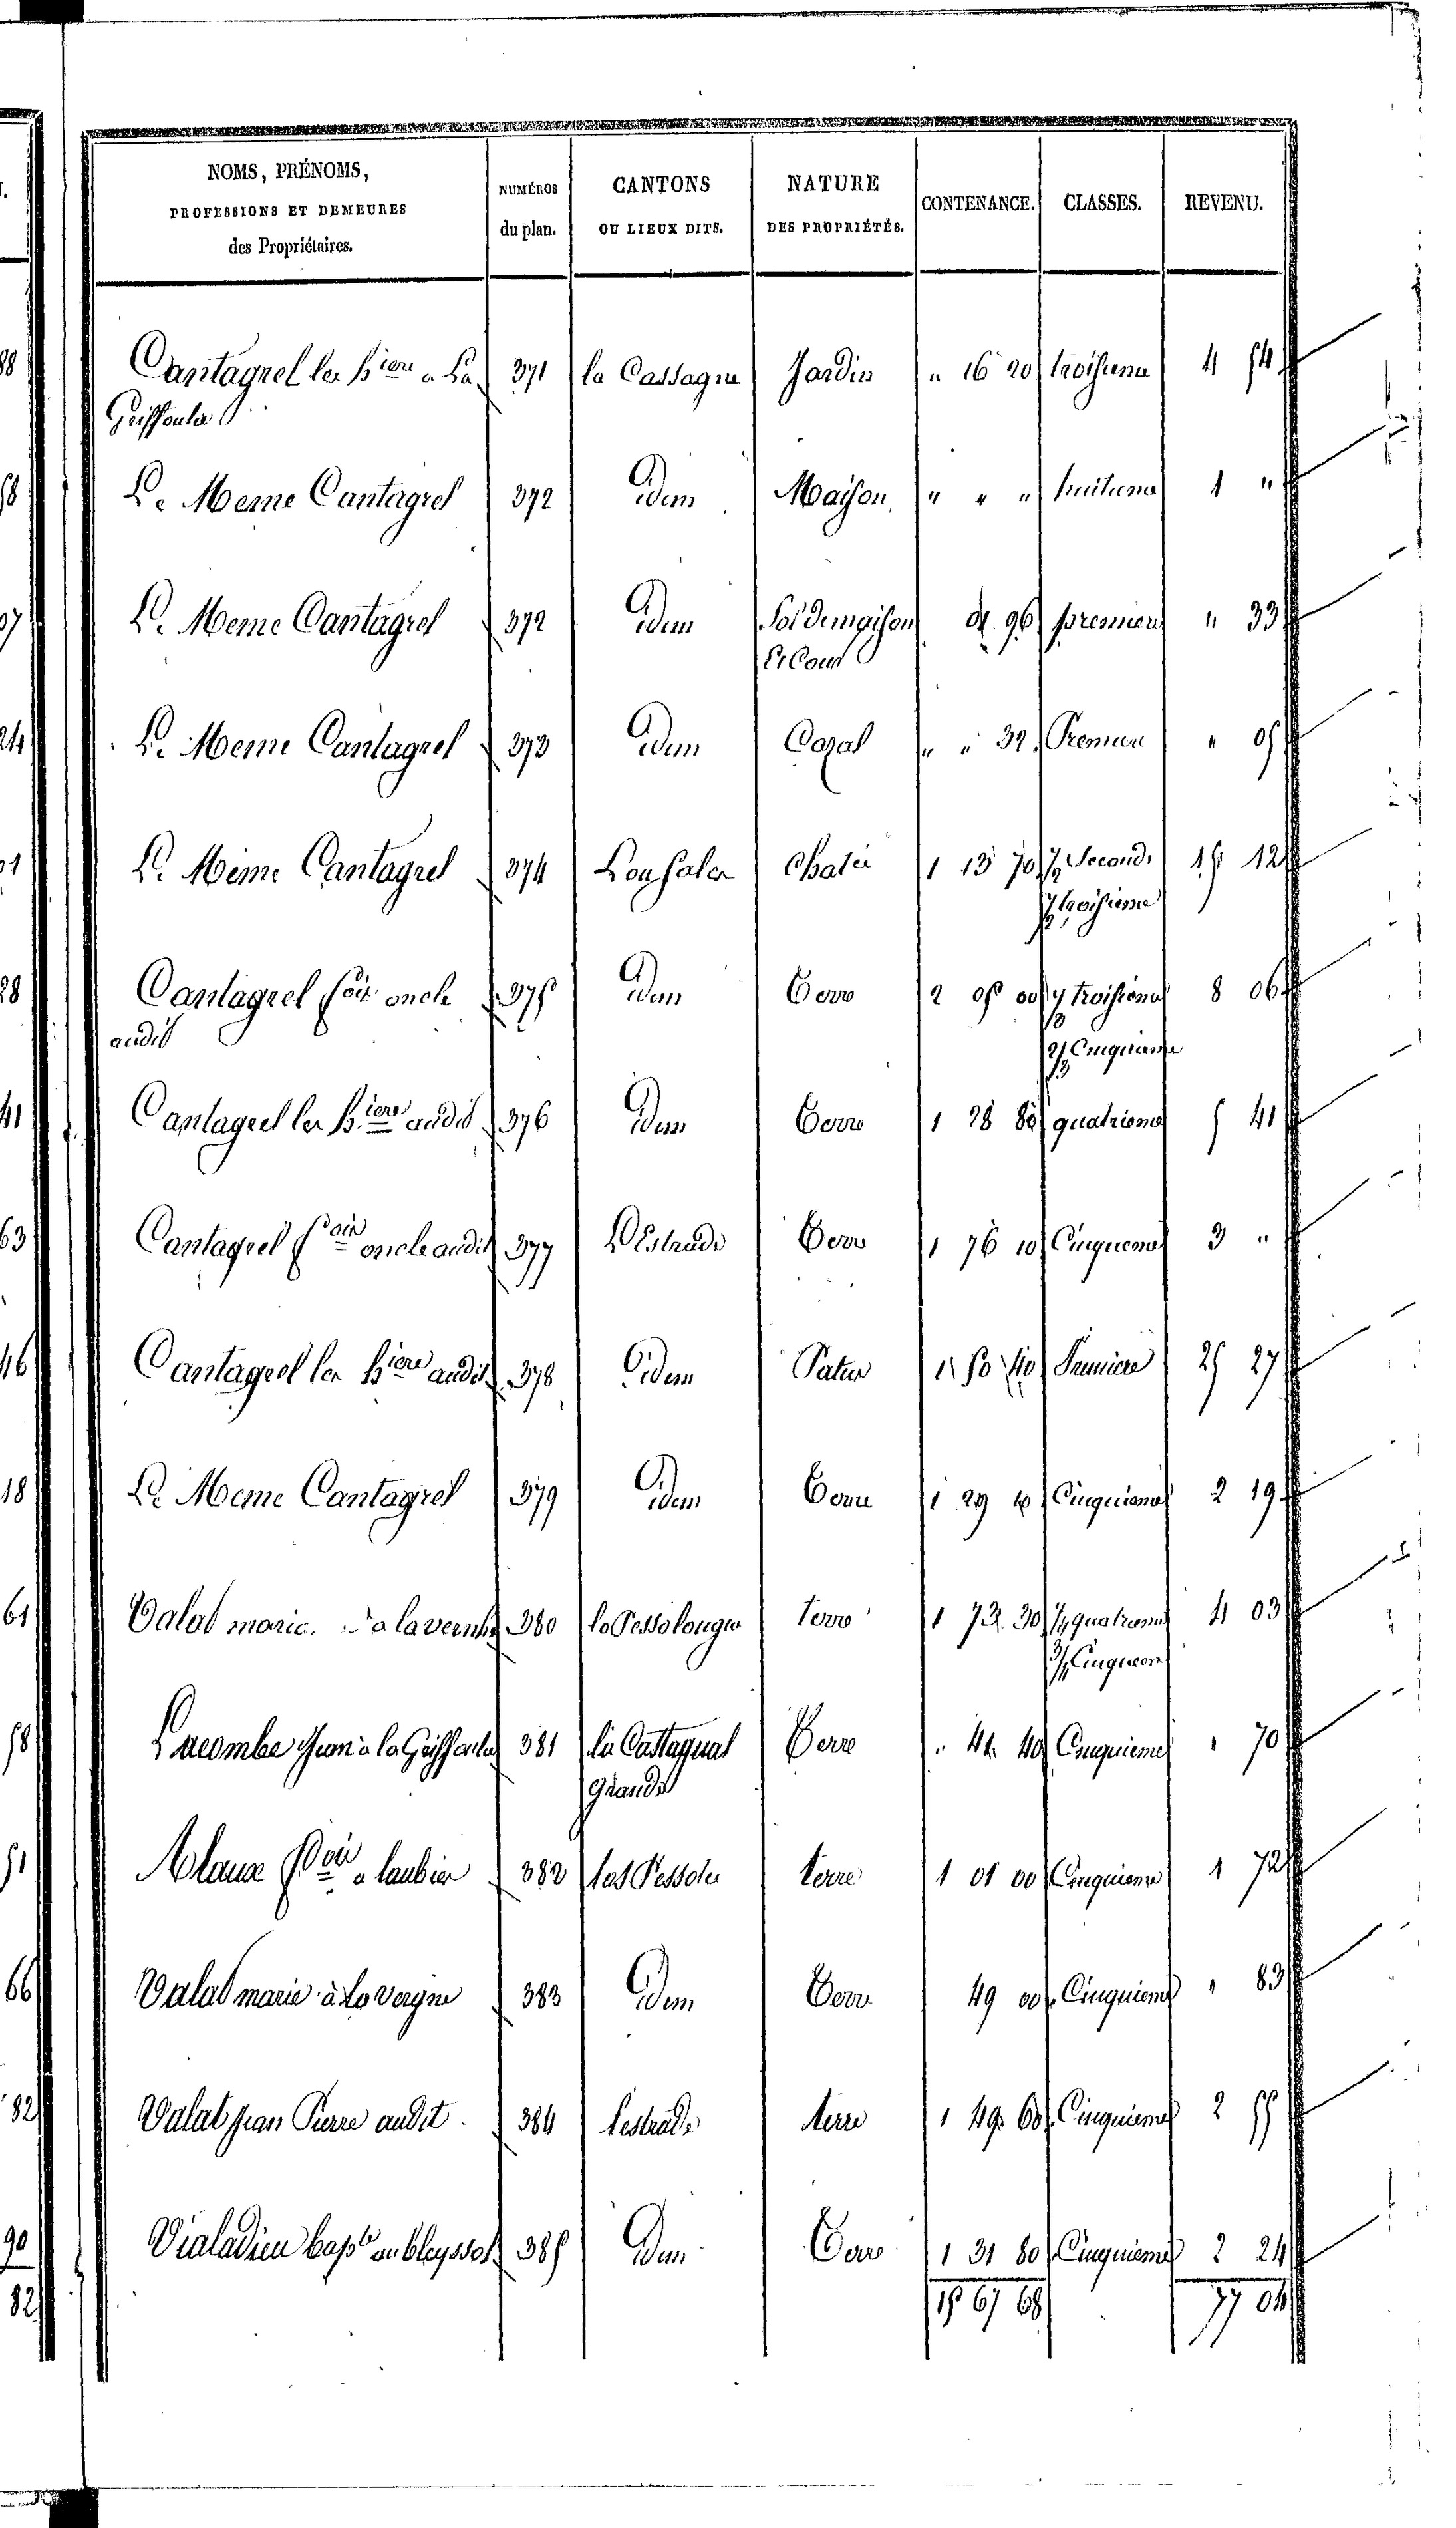 NOMS, PRÉNOMS,
PROFESSIONS ET DEMEURES
des Propriétaires.
NUMÉROS
du plan.
CANTONS
OU LIEUX DITS.
NATURE
DES PROPRIÉTÉS.
CONTENANCE.
CLASSES.
REVENU.
Cantagrel les hiers a La 371 la Cassagne Jardin " 16 20 troisieme 4 54
Griffoulie
Le Meme Cantagrel 372 Idem Maison " " " huitieme 1 "
Le Meme Cantagrel 372 Idem Sol de maison 01 96 premiere " 33
Et Cour
Le Meme Cantagrel 373 Idem Cazal " " 32 Premiere " 05
Le Meme Cantagrel 374 Chatée 1 13 70 1/2 Seconde 15 12
1/2 troisieme
Cantagrel fois oncle 375 Idem Terre 2 05 00 1/3 troisieme 8 06
audit 2/3 Cinquieme
Cantagrel les hiers audit 376 Idem Terre 1 28 80 quatrieme 5 41
Cantagrel fois oncle audit 377 L'Estrade Terre 1 76 10 Cinquieme 3 "
Cantagrel les hiers audit 378 Idem Patus 1 50 40 Premiere 25 27
Le Meme Cantagrel 379 Idem Terre 1 29 10 Cinquieme 2 19
Valat marie a lavernhe 380 terre 1 73 30 1/4 quatrieme 4 03
3/4 Cinquieme
Lacombe Jean a la Griffoulie 381 la Castagnal Terre " 41 40 Cinquieme " 70
Grande
Alaux fois a laubier 382 las Pessoles terre 1 01 00 Cinquieme 1 72
Valat marie à la vergne 383 Idem Terre 49 00 Cinquieme " 83
Valat Jean Pierre audit 384 l'estrade terre 1 49 60 Cinquieme 2 55
Vialadieu bapte au bleyssol 385 Idem Terre 1 31 80 Cinquieme 2 24
15 67 68 77 04